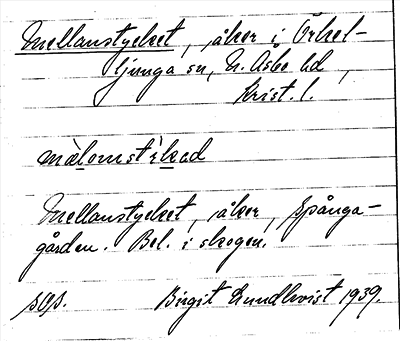 Mellanstycket, åker i Örkel-
ljunga sn, N. Åsbo hd,
Krist. l.
Mellanstycket, åker, Spånga-
gården. Bel. i skogen.
Birgit Lundkvist 1939.